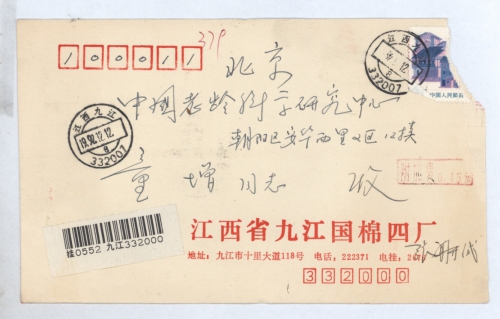 100011
379
江西九江
332007
中国人民邮政
北京
中国老龄科学研究中心
朝阳区安华西里
江西九江
1992.12.12
8
332007
同志 收
挂0552 九江332000
江西省九江国棉四厂
地址：九江市十里大道118号 电话：222371 电挂：
332000